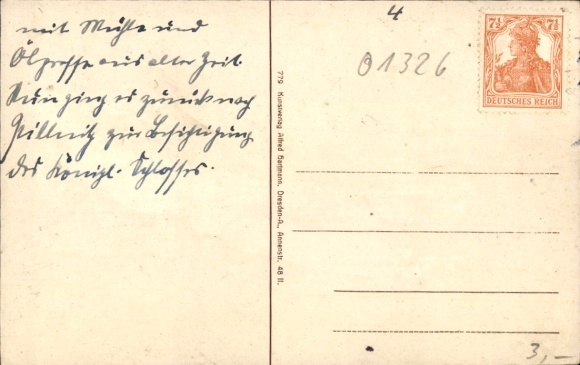 mit Mühle und
Ölpresse aus alter Zeit.
Nun ging es zurück nach
Pillnitz zur Besichtigung
des Königl. Schlosses.
779 Kunstverlag Alfred Hartmann, Dresden-A., Annenstr. 48 II.
4
01326
7½ 7½
DEUTSCHES REICH
3,–